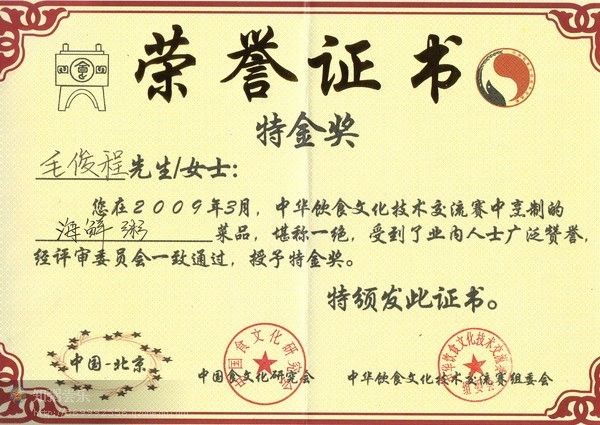 荣誉证书
特金奖
毛俊程先生/女士：
您在2009年3月，中华饮食文化技术交流赛中烹制的
海鲜粥 菜品，堪称一绝，受到了业内人士广泛赞誉，
经评审委员会一致通过，授予特金奖。
特颁发此证书。
中国-北京
中国食文化研究会
中国食文化研究会
中华饮食文化技术交流赛组委会